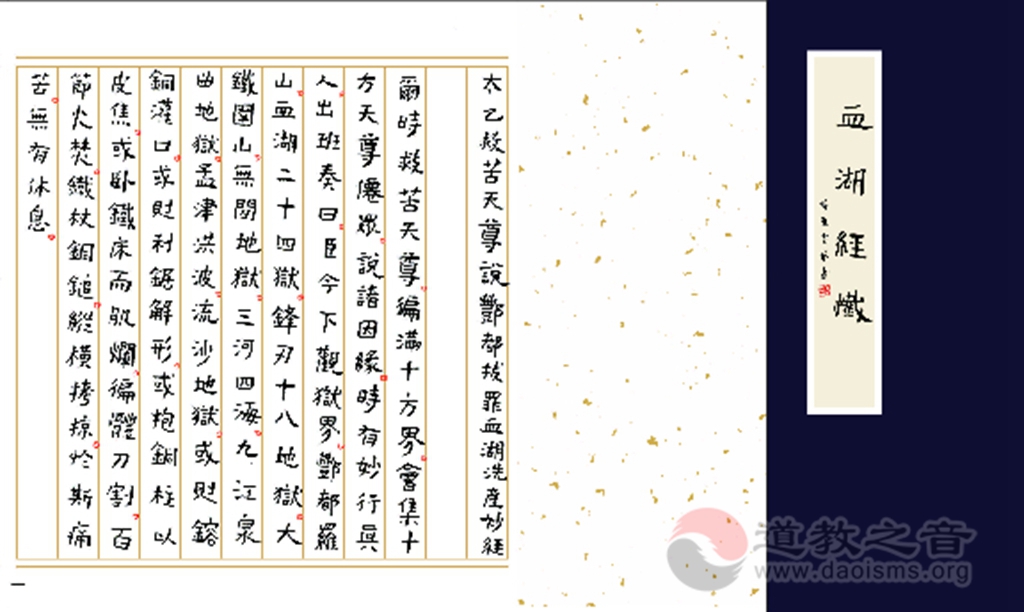 血湖經懺
太乙救苦天尊說酆都拔罪血湖洗產妙經
爾時救苦天尊徧滿十方界會集十
方天尊僊眾說諸因緣時有妙行真
人出班奏曰臣今下觀獄界酆都羅
山血湖二十四獄鋒刃十八地獄大
鐵圍山無間地獄三河四海九江泉
曲地獄孟津洪波流沙地獄或則鎔
銅灌口或則利鋸解形或抱銅柱以
皮焦或臥鐵床而肌爛徧體刀割百
節火焚鐵杖銅鎚縱橫拷掠於斯痛
苦無有休息
一
道教之音
www.daoisms.org